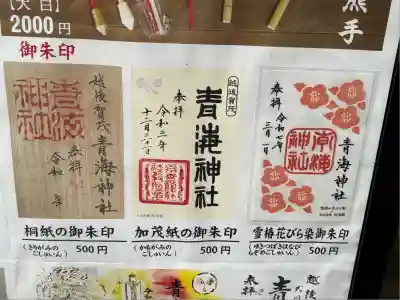 【大 白】
2000円
熊手
御朱印
越後賀茂 青海神社
奉拝
令和 年
青海神社
越後賀茂
奉拝
令和三年
十二月三十一日
青海神社
奉拝
令和七年
三月一日
青海神社
青海神社
桐紙の御朱印
(きりがみのごしゅいん)
500円
加茂紙の御朱印
(かもがみのごしゅいん)
500円
雪椿花びら染御朱印
(ゆきつばきはなびらぞめごしゅいん)
500円
奉拝
青
越後